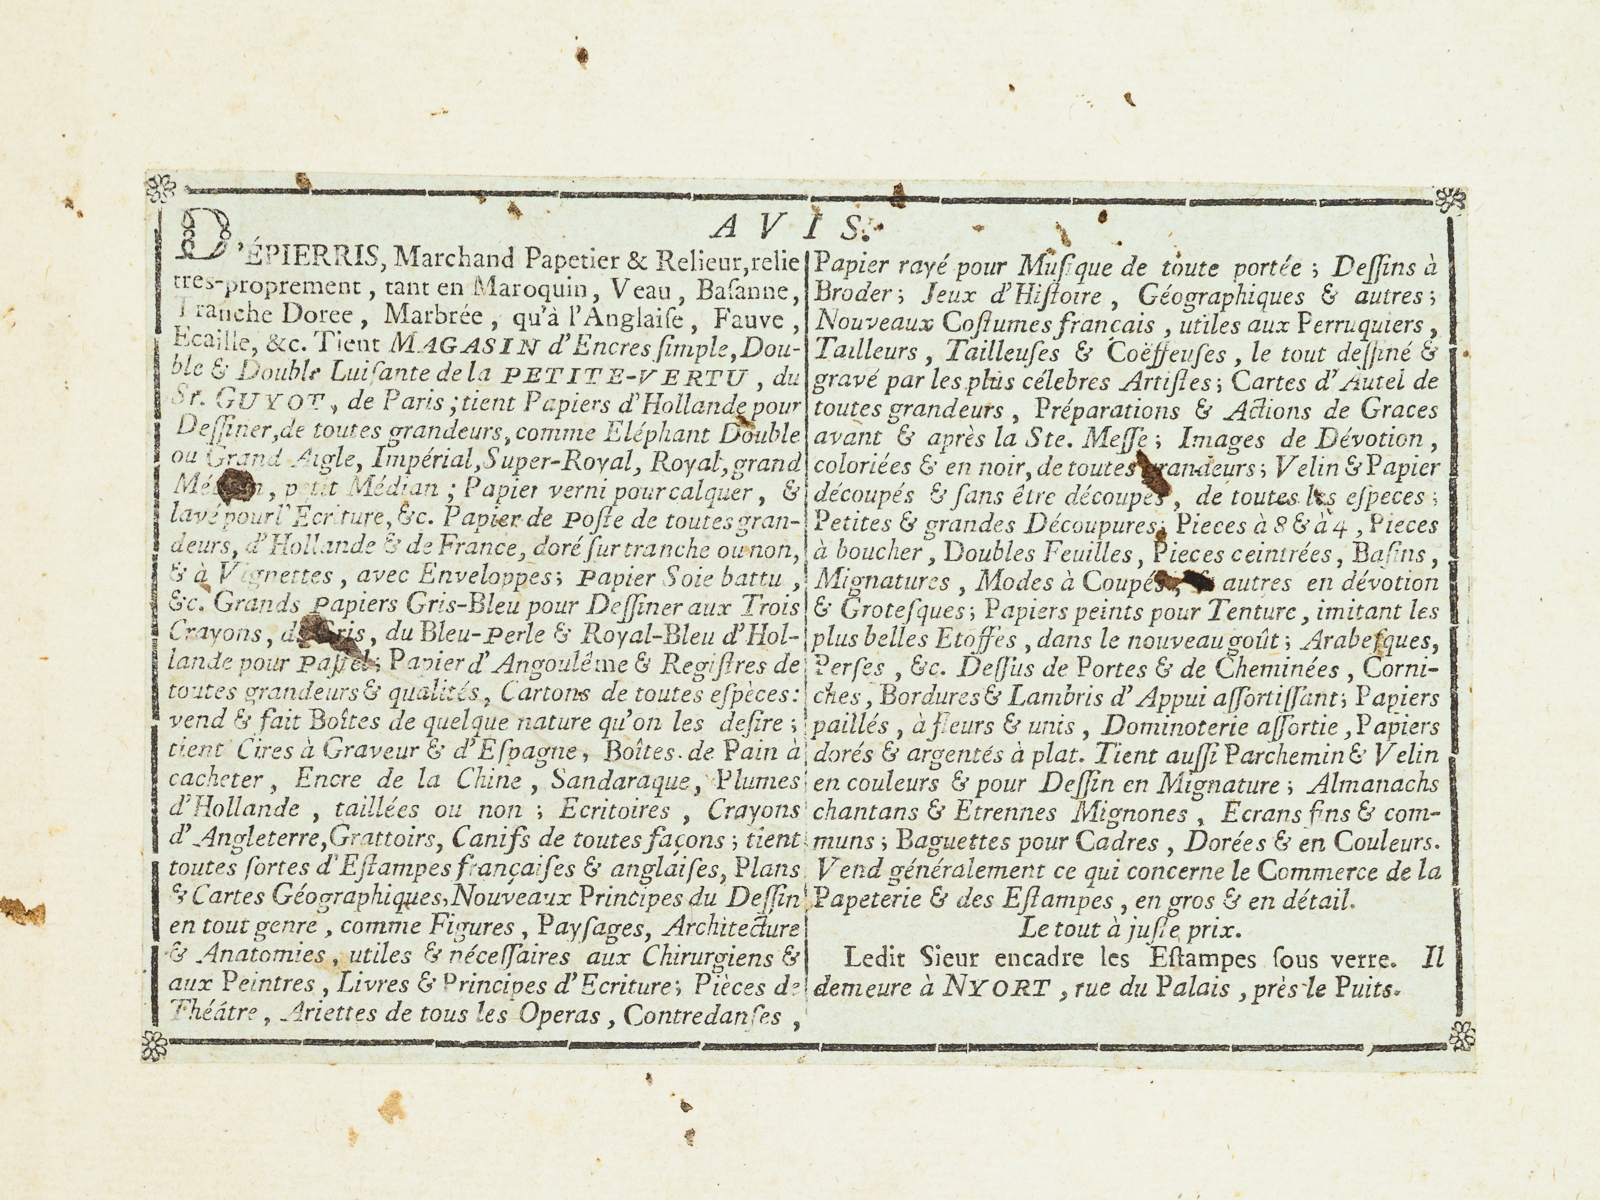 AVIS.
D'ÉPIERRIS, Marchand Papetier & Relieur, relie
tres-proprement, tant en Maroquin, Veau, Baſanne,
Tranche Doree, Marbrée, qu'à l'Anglaiſe, Fauve,
Ecaille, &c. Tient MAGASIN d'Encres ſimple, Dou-
ble & Double Luiſante de la PETITE-VERTU, du
Sr. GUYOT, de Paris; tient Papiers d'Hollande pour
Deſſiner, de toutes grandeurs, comme Eléphant Double
ou Grand Aigle, Impérial, Super-Royal, Royal, grand
Médian, petit Médian; Papier verni pour calquer, &
lavé pour l'Ecriture, &c. Papier de Poſte de toutes gran-
deurs, d'Hollande & de France, doré ſur tranche ou non,
& à Vignettes, avec Enveloppes; Papier Soie battu,
&c. Grands Papiers Gris-Bleu pour Deſſiner aux Trois
Crayons, de Gris, du Bleu-Perle & Royal-Bleu d'Hol-
lande pour Paſtel; Papier d'Angoulême & Regiſtres de
toutes grandeurs & qualités, Cartons de toutes eſpèces:
vend & fait Boîtes de quelque nature qu'on les deſire;
tient Cires à Graveur & d'Eſpagne, Boîtes de Pain à
cacheter, Encre de la Chine, Sandaraque, Plumes
d'Hollande, taillées ou non; Ecritoires, Crayons
d'Angleterre, Grattoirs, Canifs de toutes façons; tient
toutes ſortes d'Eſtampes françaiſes & anglaiſes, Plans
& Cartes Géographiques, Nouveaux Principes du Deſſin
en tout genre, comme Figures, Payſages, Architecture
& Anatomies, utiles & néceſſaires aux Chirurgiens &
aux Peintres, Livres & Principes d'Ecriture; Pièces de
Théâtre, Ariettes de tous les Operas, Contredanſes,
Papier rayé pour Muſique de toute portée; Deſſins à
Broder; Jeux d'Hiſtoire, Géographiques & autres;
Nouveaux Coſtumes français, utiles aux Perruquiers,
Tailleurs, Tailleuſes & Coëffeuſes, le tout deſſiné &
gravé par les plus célebres Artiſtes; Cartes d'Autel de
toutes grandeurs, Préparations & Actions de Graces
avant & après la Ste. Meſſe; Images de Dévotion,
coloriées & en noir, de toutes grandeurs; Velin & Papier
découpés & ſans être découpés, de toutes les eſpeces;
Petites & grandes Découpures; Pieces à 8 & à 4, Pieces
à boucher, Doubles Feuilles, Pieces ceintrées, Baſins,
Mignatures, Modes à Coupés, & autres en dévotion
& Groteſques; Papiers peints pour Tenture, imitant les
plus belles Etoffes, dans le nouveau goût; Arabeſques,
Perſes, &c. Deſſus de Portes & de Cheminées, Corni-
ches, Bordures & Lambris d'Appui aſſortiſſant; Papiers
paillés, à fleurs & unis, Dominoterie aſſortie, Papiers
dorés & argentés à plat. Tient auſſi Parchemin & Velin
en couleurs & pour Deſſin en Mignature; Almanachs
chantans & Etrennes Mignones, Ecrans fins & com-
muns; Baguettes pour Cadres, Dorées & en Couleurs.
Vend généralement ce qui concerne le Commerce de la
Papeterie & des Eſtampes, en gros & en détail.
Le tout à juſte prix.
Ledit Sieur encadre les Eſtampes ſous verre. Il
demeure à NYORT, rue du Palais, près le Puits.